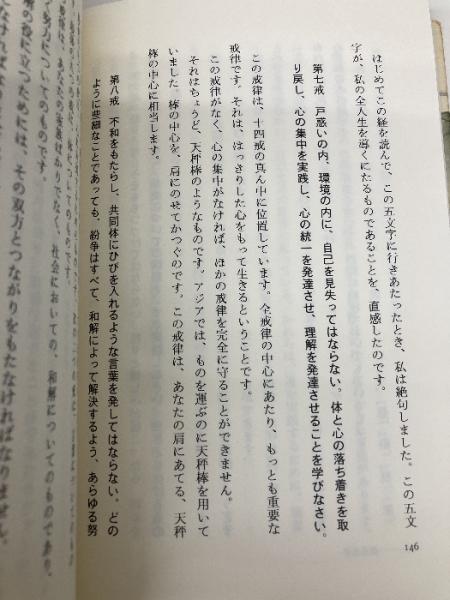 はじめてこの経を読んで、この五文字に行きあたったとき、私は絶句しました。この五文
字が、私の全人生を導くにたるものであることを、直感したのです。
第七戒　戸惑いの内、環境の内に、自己を見失ってはならない。体と心の落ち着きを取
り戻し、心の集中を実践し、心の統一を発達させ、理解を発達させることを学びなさい。
この戒律は、十四戒の真ん中に位置しています。全戒律の中心にあたり、もっとも重要な
戒律です。それは、はっきりした心をもって生きるということです。
この戒律がなく、心の集中がなければ、ほかの戒律を完全に守ることができません。
それはちょうど、天秤棒のようなものです。アジアでは、ものを運ぶのに天秤棒を用いて
いました。棒の中心を、肩にのせてかつぐのです。この戒律は、あなたの肩にあてる、天秤
棒の中心に相当します。
第八戒　不和をもたらし、共同体にひびを入れるような言葉を発してはならない。どの
ように些細なことであっても、紛争はすべて、和解によって解決するよう、あらゆる努
146
社会においての、和解についてものであり、
努力についてのものです。
の役に立つためには、その双方とつながりをもたなければなりません。